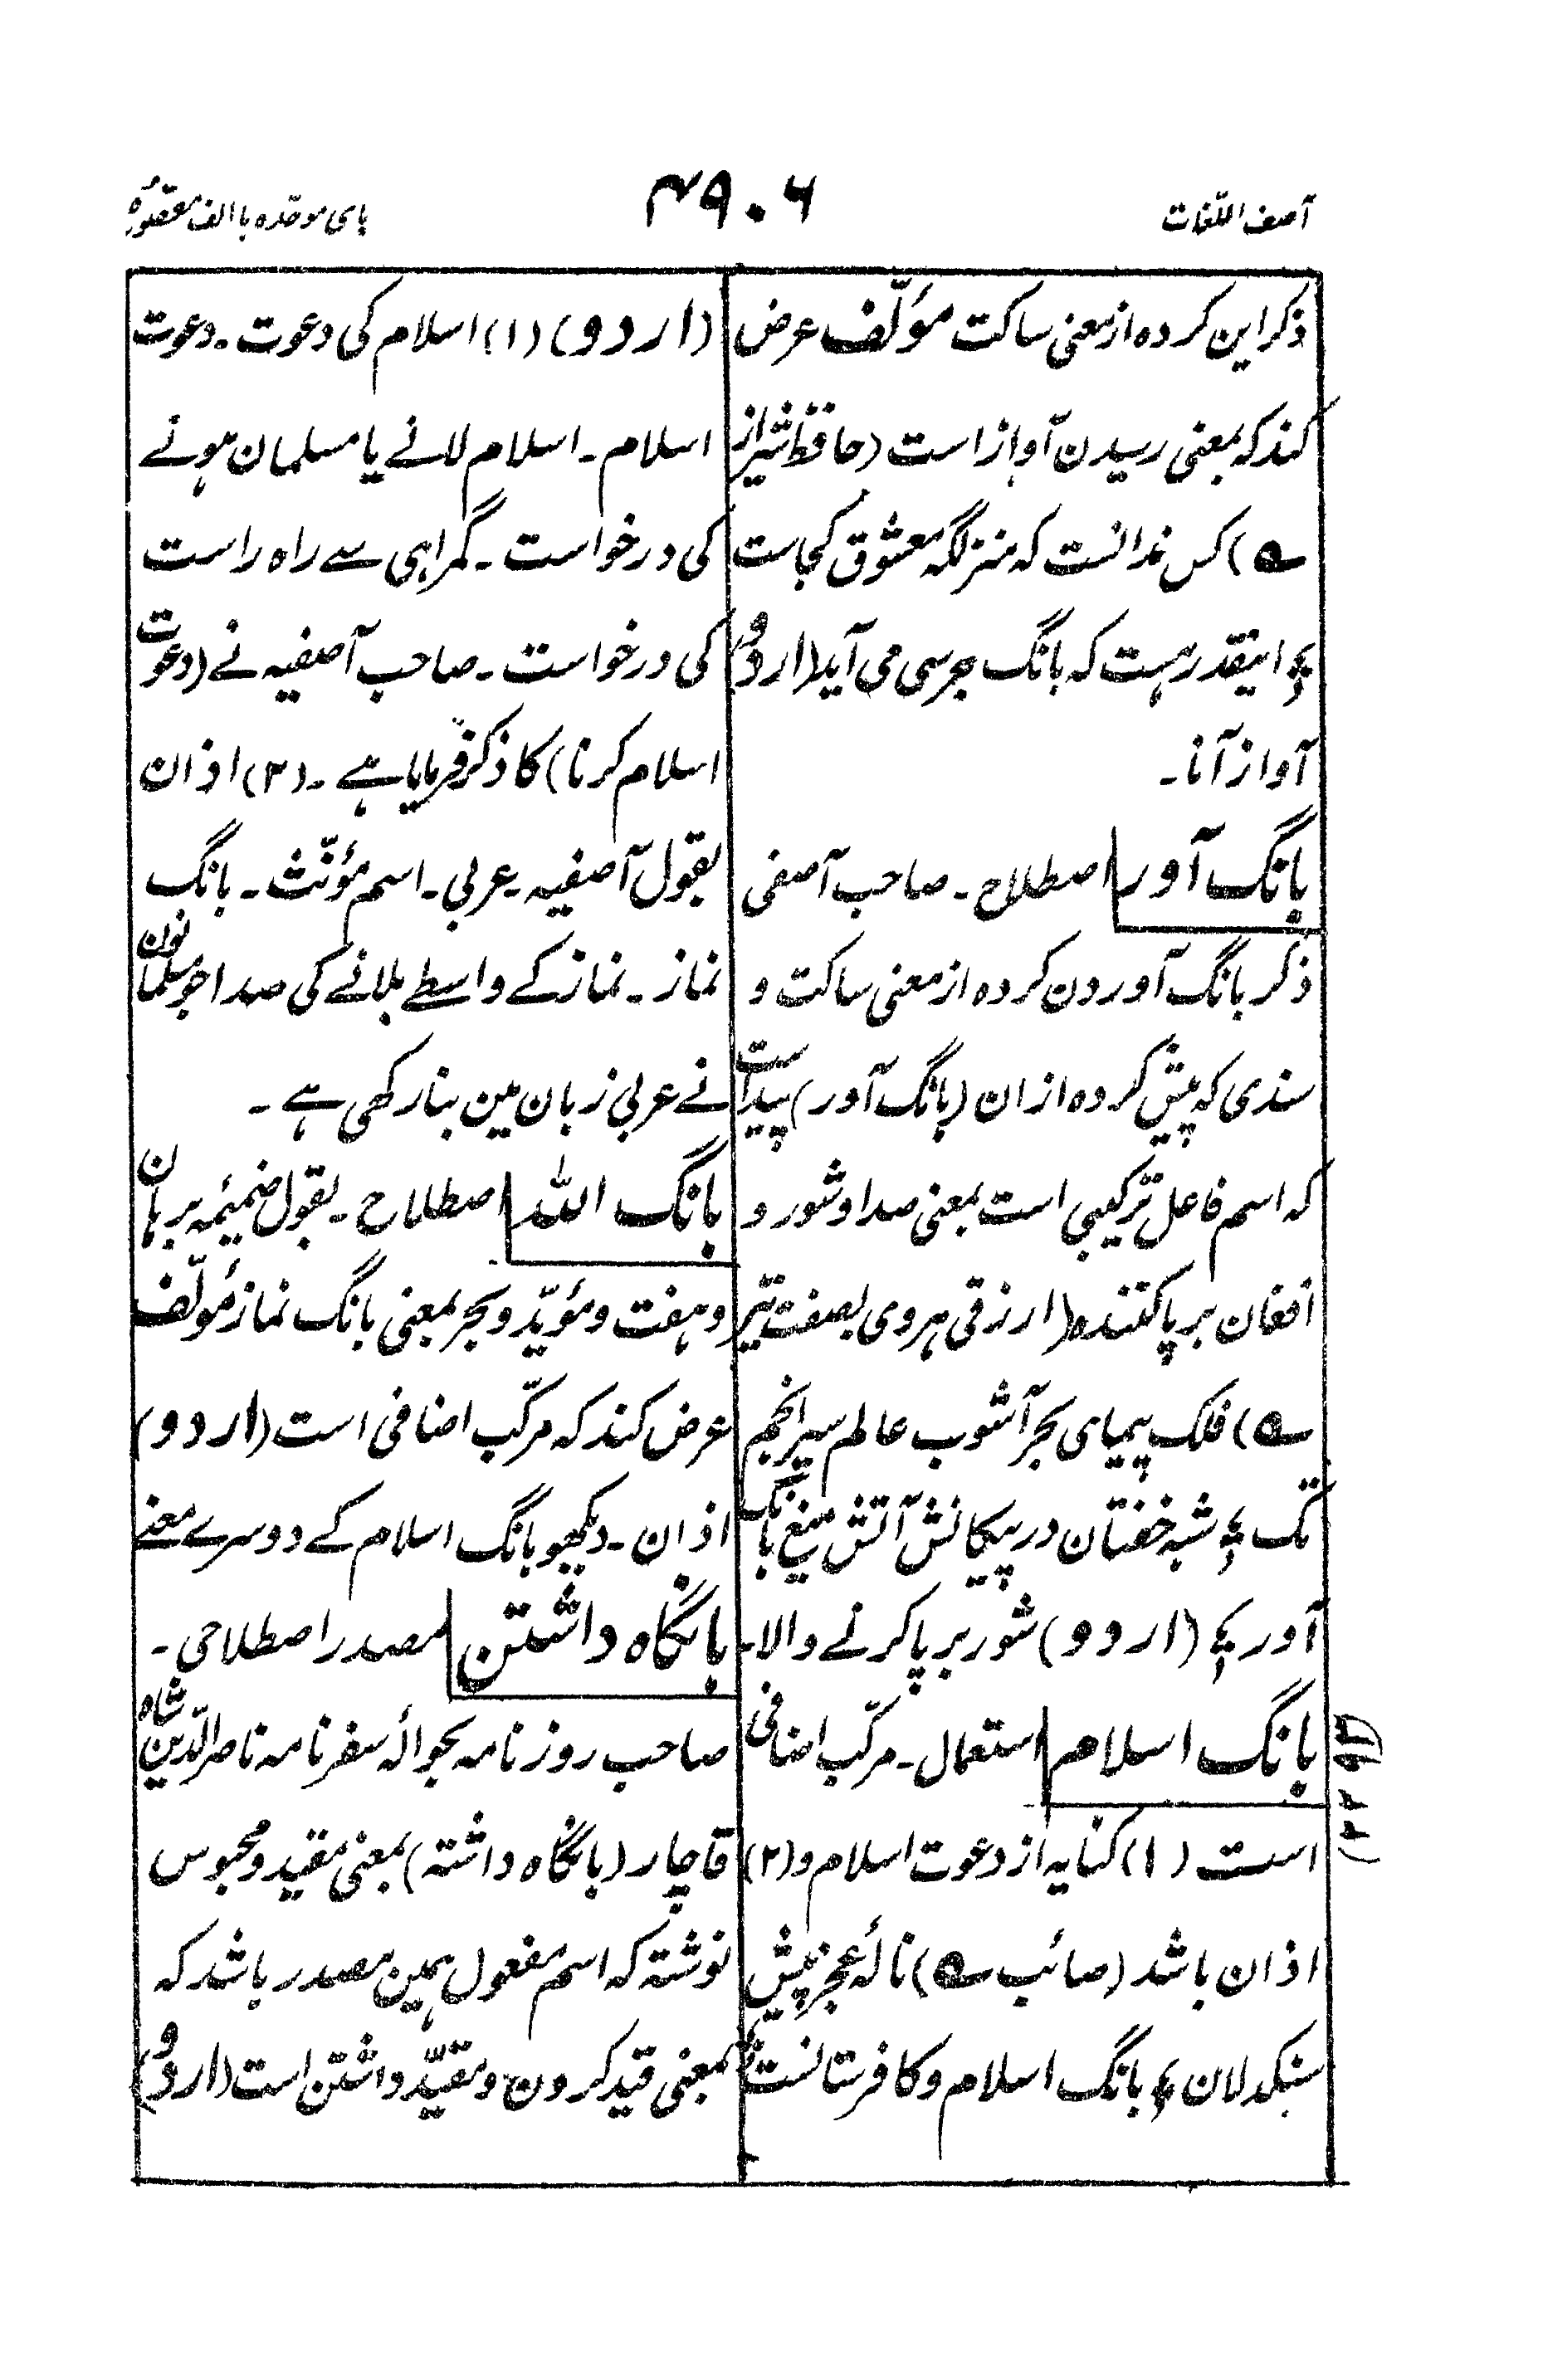 آصف اللغات
۴۹۰۶
بای موحّدہ با الف مقصورہ
ذکر این کردہ از معنی ساکت مؤلّف عرض
کند کہ بمعنی رسیدن آواز است (حافظ شیراز
؎) کس ندانست کہ منزلگہ معشوق کجاست
؏ اینقدر ہست کہ بانگ جرسی می آید (اردو)
آواز آنا۔
بانگ آور اصطلاح۔ صاحب آصفی
ذکر بانگ آوردن کردہ از معنی ساکت و
سندی کہ پیش کردہ ازان (بانگ آور) پیداست
کہ اسم فاعل ترکیبی است بمعنی صدا و شور و
افغان برپا کنندہ (ارزقی ہروی بصفت تیر
؎) فلک پیمای بحر آشوب عالم سیر انجم
تک ؏ شبہ خفتان در پیکانش آتش میغ بانگ
آور ؏ (اردو) شور برپا کرنے والا۔
بانگ اسلام استعمال۔ مرکّب اضافی
است (۱) کنایہ از دعوت اسلام و (۲)
اذان باشد (صائب ؎) نالۂ عجز پیش
سنگدلان ؏ بانگ اسلام و کافرستانست
(اردو) (۱) اسلام کی دعوت۔ دعوت
اسلام۔ اسلام لانے یا مسلمان ہونے
کی درخواست۔ گمراہی سے راہ راست
کی درخواست۔ صاحب آصفیہ نے (دعوت
اسلام کرنا) کا ذکر فرمایا ہے۔ (۲) اذان
بقول آصفیہ۔ عربی۔ اسم مؤنّث۔ بانگ
نماز۔ نماز کے واسطے بلانے کی صدا جو مسلمانون
نے عربی زبان مین بنا رکھی ہے۔
بانگ اللہ اصطلاح۔ بقول ضمیمہ برہان
و ہفت و مؤیّد و بحر بمعنی بانگ نماز مؤلّف
عرض کند کہ مرکّب اضافی است (اردو)
اذان۔ دیکھو بانگ اسلام کے دوسرے معنے
بانگاہ داشتن مصدر اصطلاحی۔
صاحب روزنامہ بحوالہ سفرنامہ ناصر الدّین شاہ
قاچار (بانگاہ داشتہ) بمعنی مقید و محبوس
نوشتہ کہ اسم مفعول ہمین مصدر باشد کہ
بمعنی قید کردن و مقیّد داشتن است (اردو)